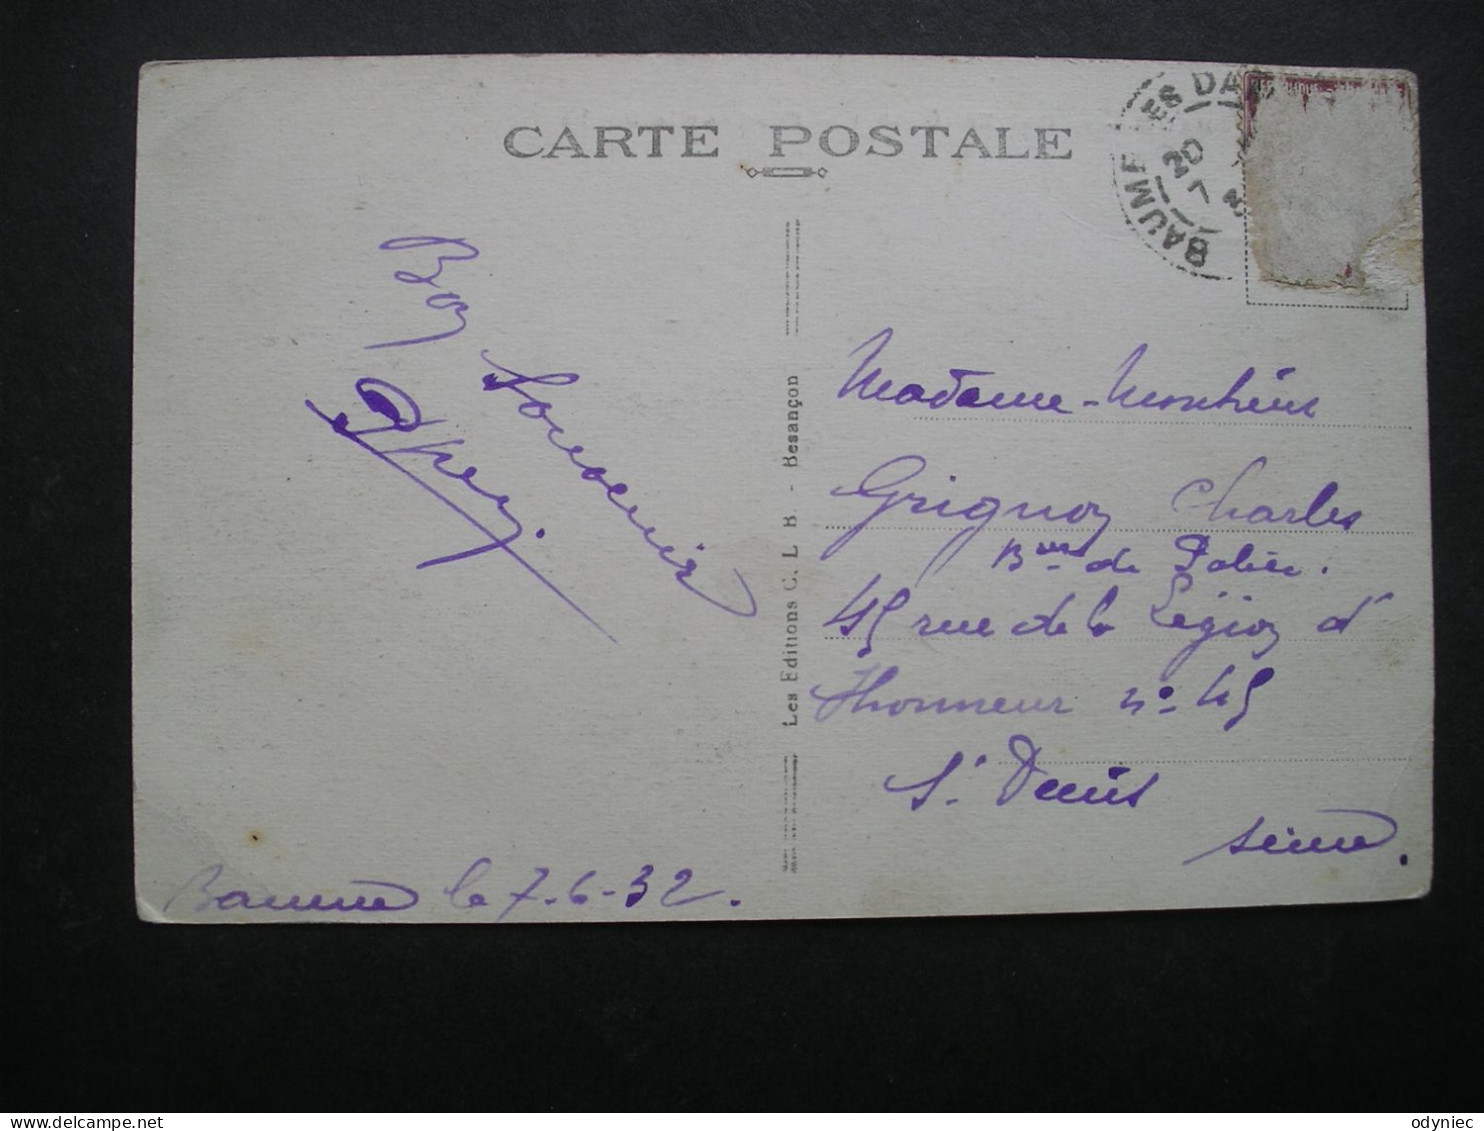 CARTE POSTALE
BAUME LES DA
20
7
Bon
Souvenir
Baume le 7-6-32.
Les Editions C. L. B. - Besançon
Madame - Monsieur
Grignon Charles
Bur de Police.
45 rue de la Légion d'
Honneur n° 45
St Denis
Seine.
odyniec